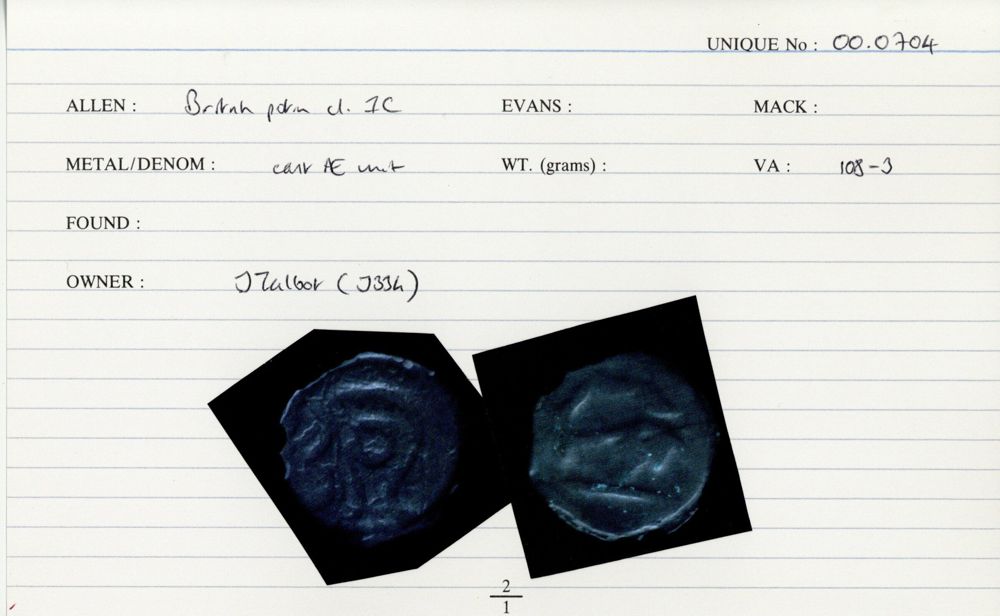 UNIQUE No : 00.0704
ALLEN : British potin cl. IC EVANS : MACK :
METAL/DENOM : cast Æ unit WT. (grams) : VA : 108-3
FOUND :
OWNER : J Talbot (J334)
2
1